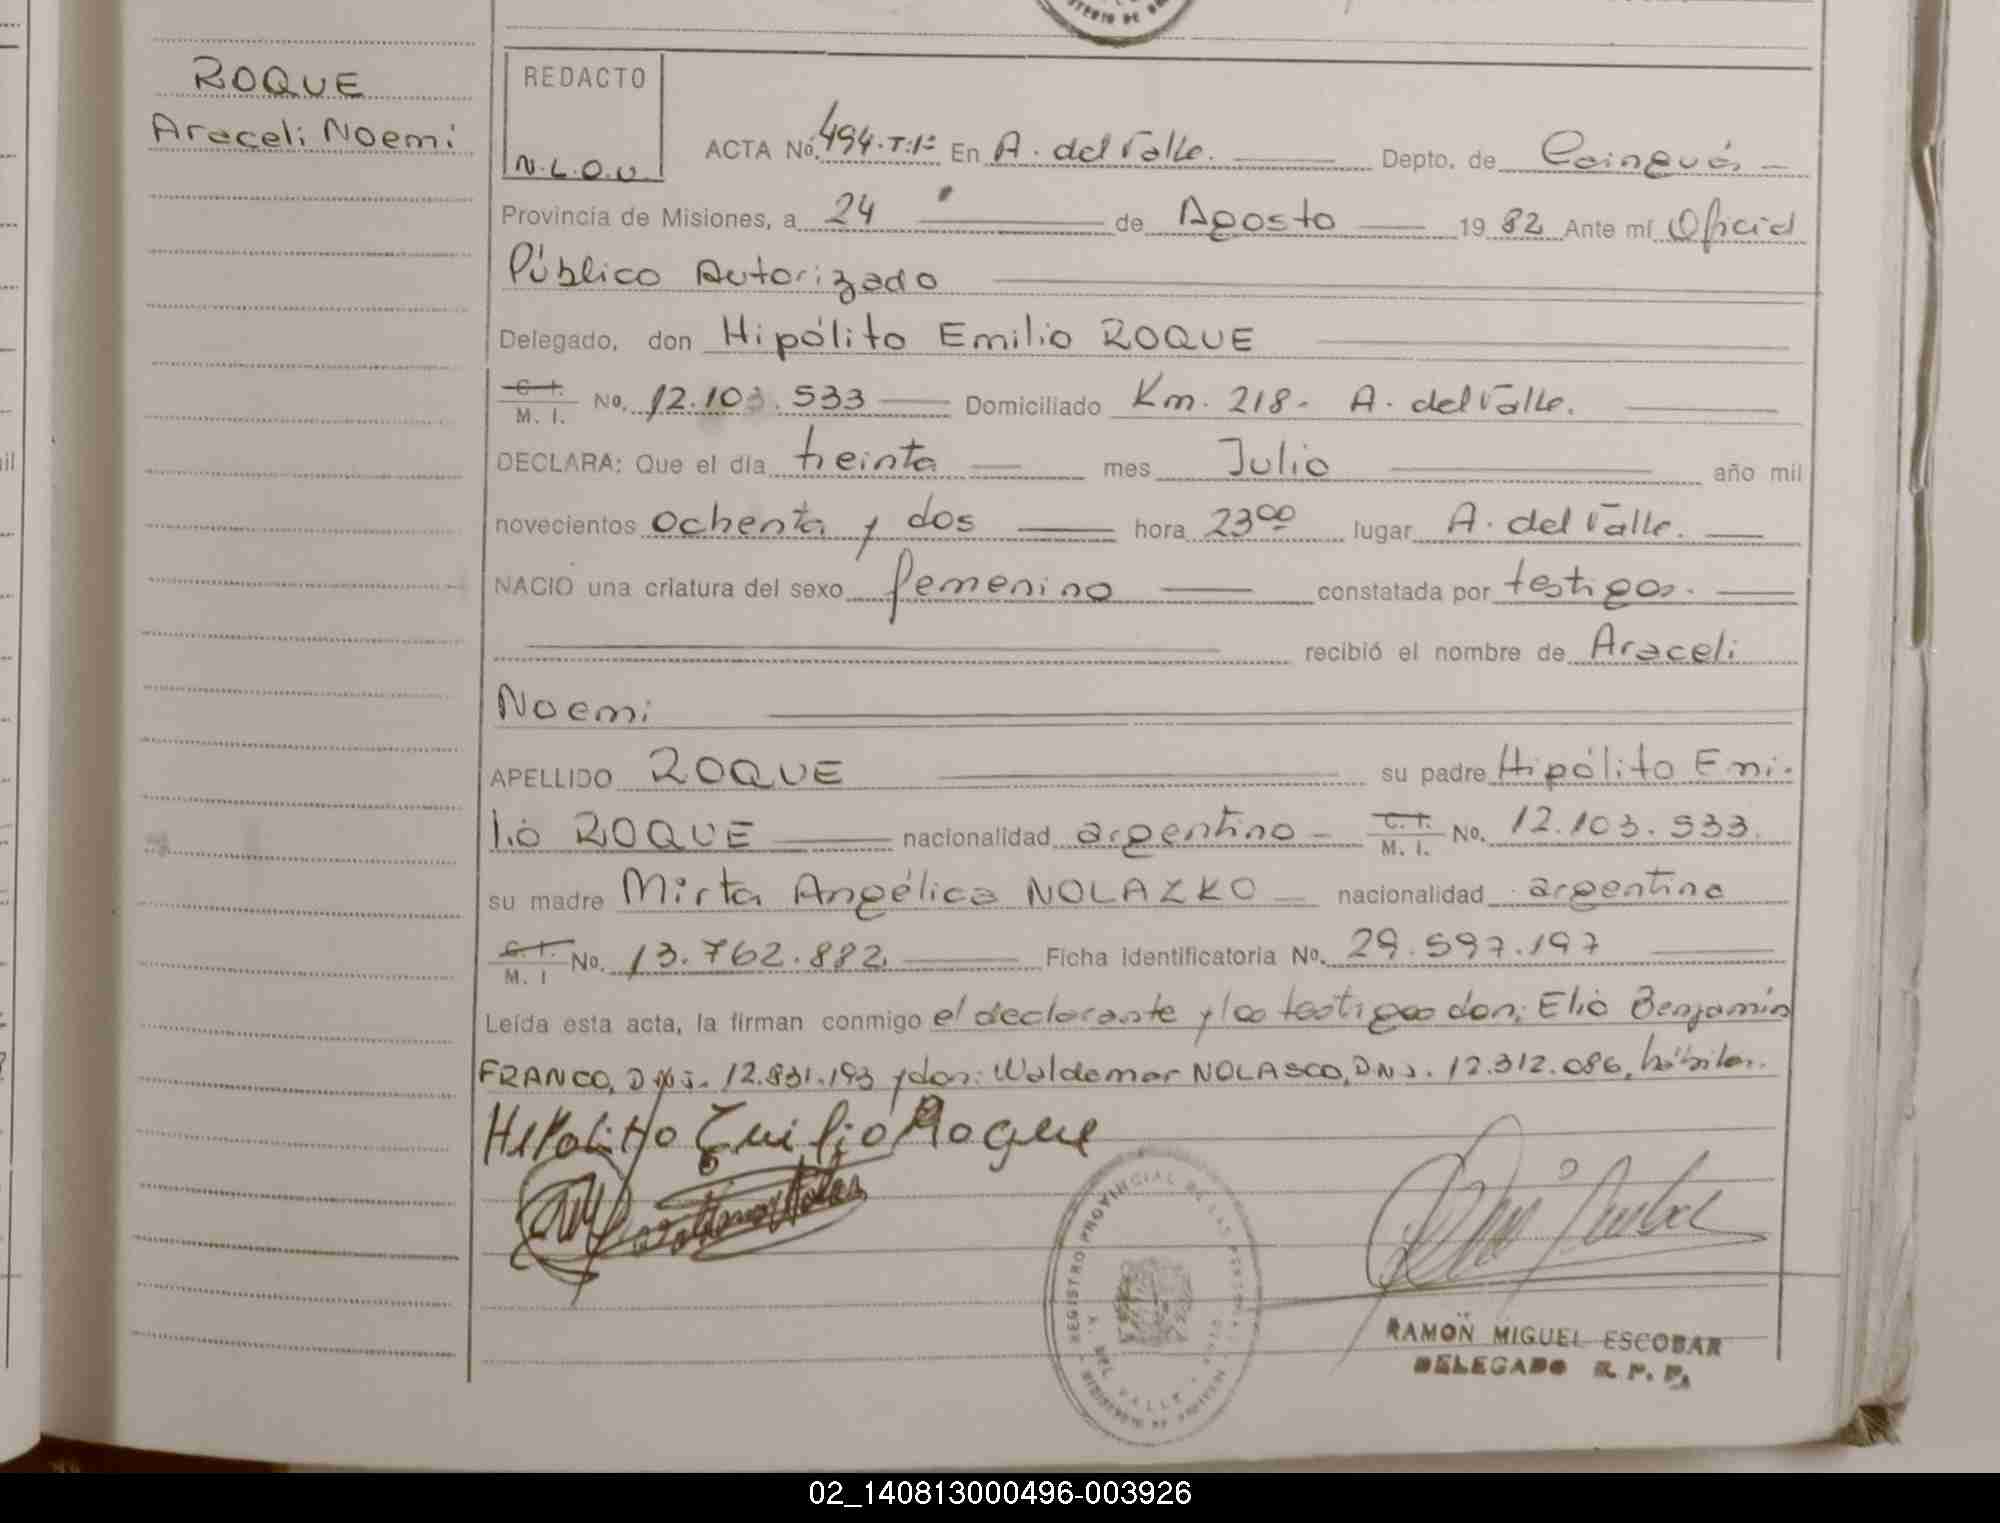 ROQUE
Araceli Noemi
REDACTO
N.L.O.U.
ACTA No. 494.T:1º En A. del Valle. Depto. de Cainguás
Provincia de Misiones, a 24 de Agosto 1982 Ante mí Oficial
Público Autorizado
Delegado, don Hipólito Emilio ROQUE
C. I.
M. I. No. 12.103.533 Domiciliado Km. 218- A. del Valle.
DECLARA: Que el día treinta mes Julio año mil
novecientos ochenta y dos hora 23⁰⁰ lugar A. del Valle.
NACIO una criatura del sexo femenino constatada por testigos.
recibió el nombre de Araceli
Noemi
APELLIDO ROQUE su padre Hipólito Emi-
lio ROQUE nacionalidad argentino C. I. M. I. No. 12.103.533
su madre Mirta Angélica NOLAZKO nacionalidad argentina
C. I. M. I No. 13.762.882 Ficha identificatoria No. 29.597.197
Leída esta acta, la firman conmigo el declarante y los testigos don: Elio Benjamín
FRANCO, DNI. 12.831.193 y don: Waldemar NOLASCO, DNI. 12.312.086, hábiles.
Hipolito Emilio Roque
REGISTRO PROVINCIAL DE LAS PERSONAS
A. DEL VALLE
MINISTERIO DE
RAMON MIGUEL ESCOBAR
DELEGADO R. P. P.
02_140813000496-003926